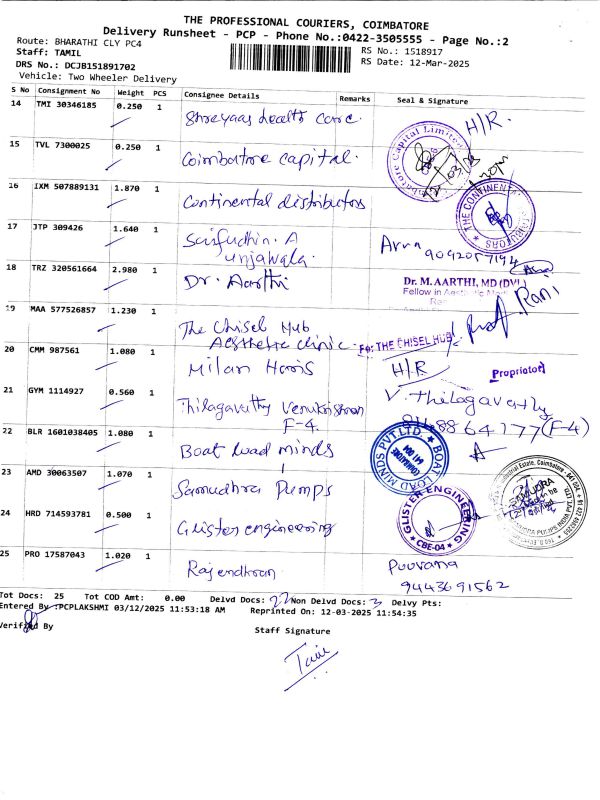 THE PROFESSIONAL COURIERS, COIMBATORE
Delivery Runsheet - PCP - Phone No.:0422-3505555 - Page No.:2
Route: BHARATHI CLY PC4
Staff: TAMIL
RS No.: 1518917
DRS No.: DCJB151891702
RS Date: 12-Mar-2025
Vehicle: Two Wheeler Delivery
S No Consignment No Weight PCS Consignee Details Remarks Seal & Signature
14 TMI 30346185 0.250 1 Shreyaas health care. H/R.
15 TVL 7300025 0.250 1 Coimbatore capital.
16 IXM 507889131 1.870 1 Continental distributors
THE CONTINENTAL
17 JTP 309426 1.640 1 Saifudhin. A
unjawala. Arun
18 TRZ 320561664 2.980 1 Dr. Aarthi
Dr. M. AARTHI, MD (DVL)
Fellow in
Rani
19 MAA 577526857 1.230 1 The Chisel Hub
Aesthetic clinic. For THE CHISEL HUB
20 CMM 987561 1.080 1 Milan Horis H/R
Proprietor
21 GYM 1114927 0.560 1 Thilagavathy Venukrishnan
F-4. V. Thilagavathy
(F-4)
22 BLR 1601038405 1.080 1 Boat load minds
BOAT LOAD MINDS PVT LTD
COIMBATORE
641 004
23 AMD 30063507 1.070 1 Samudhra Pumps
24 HRD 714593781 0.500 1 Glister engineering
GLISTER ENGINEERING
CBE-04
25 PRO 17587043 1.020 1 Rajendhran. Poorana
9443691562
Tot Docs: 25 Tot COD Amt: 0.00 Delvd Docs: 22 Non Delvd Docs: 3 Delvy Pts:
Entered By :PCPLAKSHMI 03/12/2025 11:53:18 AM Reprinted On: 12-03-2025 11:54:35
Verified By
Staff Signature